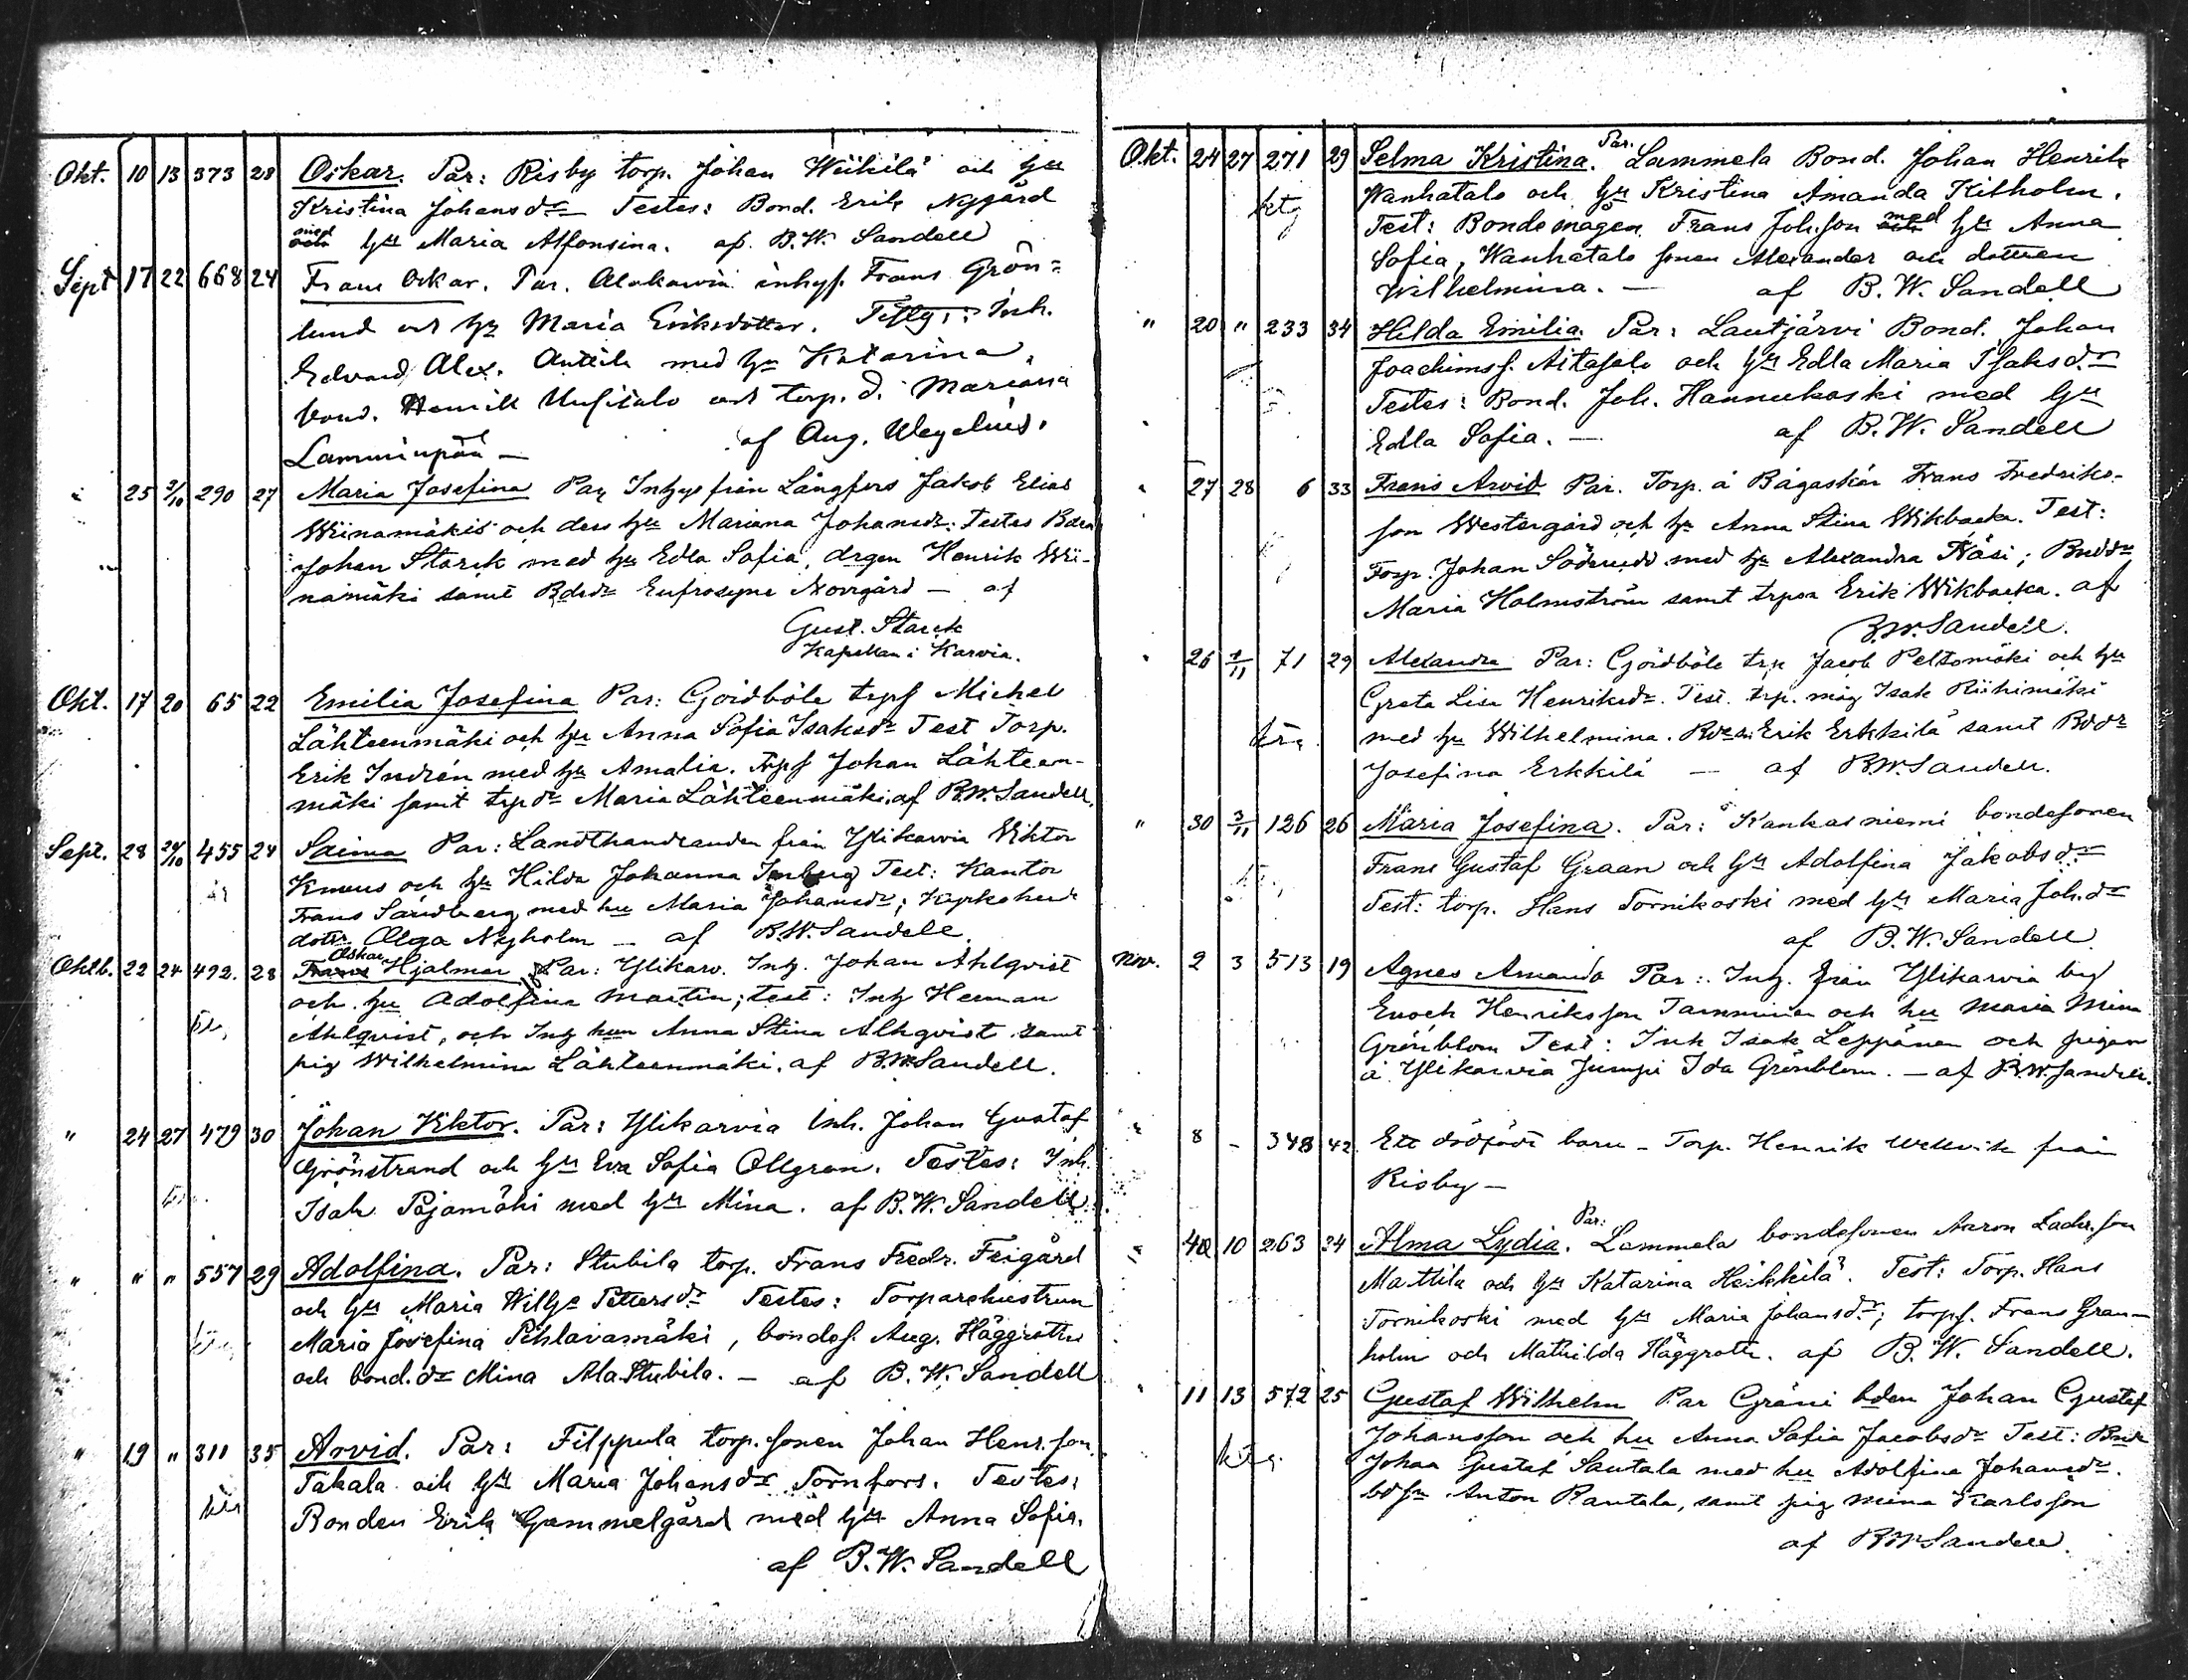 Okt. 10 13 373 28 Oskar. Par: Risby torp. Johan Wiikilä och hu
Kristina Johansdr Testes: Bond. Erik Nygård
med hu Maria Alfonsina. af. B.W. Sandell
Sept 17 22 668 24 Frans Oskar. Par. Alakarvia inhys. Frans Grön=
lund och hu Maria Eriksdotter. Testes: Inh.
Edvard Alex. Anttila med hu Katarina,
bond. Henrik Uusitalo och torp. d. Mariana
Lamminpää — af Aug. Wegelius.
" 25 2/10 290 27 Maria Josefina Par Inhys från Långfors Jakob Elias
Wiinamäkis och dess hu Mariana Johansdr: Testes Bden
Johan Starck med hu Edla Sofia, drgen Henrik Wii-
namäki samt Bdsdr Eufrosyne Norrgård — af
Gust. Starck
Kapellan i Karvia.
Okt. 17 20 65 22 Emilia Josefina Par: Goidböle trps Michel
Lähteenmäki och hu Anna Sofia Isaksdr Test Torp.
Erik Indrén med hu Amalia. trps Johan Lähteen-
mäki samt trpdr Maria Lähteenmäki. af B.W. Sandell.
Sept. 28 24/10 455 24 Saima Par: Landthandlanden från Ylikarvia Viktor
Knuus och hu Hilda Johanna Test: Kantor
Frans Sandberg med hu Maria Johansdr;
dotter Olga Nyholm — af B.W. Sandell.
Oktb. 22 24 492. 28 Oskar Hjalmar Par: Ylikarv. Inh. Johan Ahlqvist
och hu Adolfina Martin; test: Inh Herman
Ahlqvist, och Inh hun Anna Stina Alhqvist samt
pig Wilhelmina Lähteenmäki. af B.W. Sandell.
" 24 27 479 30 Johan Viktor. Par: Ylikarvia Inh. Johan Gustaf
Grönstrand och hu Eva Sofia Ollgren. Testes: Inh.
Isak Pajamäki med hu Mina. af B.W. Sandell
" " " 557 29 Adolfina. Par: Stubila torp. Frans Fredr. Feigård
och hu Maria Wilh:a Pettersdr Testes: Torparehustrun
Maria Josefina Pihlavamäki, bondes. Aug. Häggroth
och bond.dr Mina AlaStubila. — af B.W. Sandell
" 19 " 311 35 Arvid. Par: Filppula torp.sonen Johan Henr.son.
Takala och hu Maria Johansdr Tornfors. Testes:
Bonden Erik Gammelgård med hu Anna Sofia.
af B.W. Sandell
Okt. 24 27 271 29 Selma Kristina. Par. Lammela Bond. Johan Henrik
Wanhatalo och hu Kristina Amanda Kitholm.
Test: Bondemågen Frans Joh.son med hu Anna
Sofia, Wanhatalo sonen Alexander och dottren
Wilhelmina. — af B.W. Sandell
" 20 " 233 34 Hilda Emilia. Par: Lautjärvi Bond. Johan
Joachimss. Aitasalo och hu Edla Maria Isaksdr
Testes: Bond. Joh. Hannukoski med hu
Edla Sofia. — af B.W. Sandell
" 27 28 6 33 Frans Arvid Par. Torp. å Bågaskär Frans Fredriks-
son Westergård och hu Anna Stina Wikbacka. Test:
Torp. Johan Söderlund med hu Alexandra Näsi; Bnddr
Maria Holmström samt trpsn Erik Wikbacka. af
B.W. Sandell.
" 26 1/11 71 29 Alexandra Par: Goidböle trp Jacob Peltomäki och hu
Greta Lisa Henriksdr. Test. trp. måg Isak Riihimäki
med hu Wilhelmina. Erik Erkkilä samt Bddr
Josefina Erkkilä — af B.W. Sandell.
" 30 3/11 126 26 Maria Josefina. Par: Kankasniemi bondesonen
Frans Gustaf Graan och hu Adolfina Jakobsdr
Test: torp. Hans Tornikoski med hu Maria Joh.dr
af B.W. Sandell
Nov. 2 3 513 19 Agnes Amanda Par: Inh. från Ylikarvia by
Enoch Henriksson Tamminen och hu Maria Mina
Grönblom Test: Inh Isak Leppänen och pigan
å Ylikarvia Jumpi Ida Grönblom. — af B.W. Sandell.
" 8 - 348 42 Ett dödfödt barn — Torp. Henrik Wellvik från
Risby —
" 10 263 24 Alma Lydia. Par: Lammela bondesonen Aaron Zachr.son
Mattila och hu Katarina Heikkilä. Test: Torp. Hans
Tornikoski med hu Maria Johansdr; torps. Frans Gran-
holm och Mathilda Häggroth. af B.W. Sandell.
" 11 13 572 25 Gustaf Wilhelm Par Gräni bden Johan Gustaf
Johansson och hu Anna Sofia Jacobsdr Test: Bnd
Johan Gustaf Santala med hu Adolfina Johansdr.
bdsn Anton Rantala, samt pig Mina Karlsson
af B.W. Sandell.